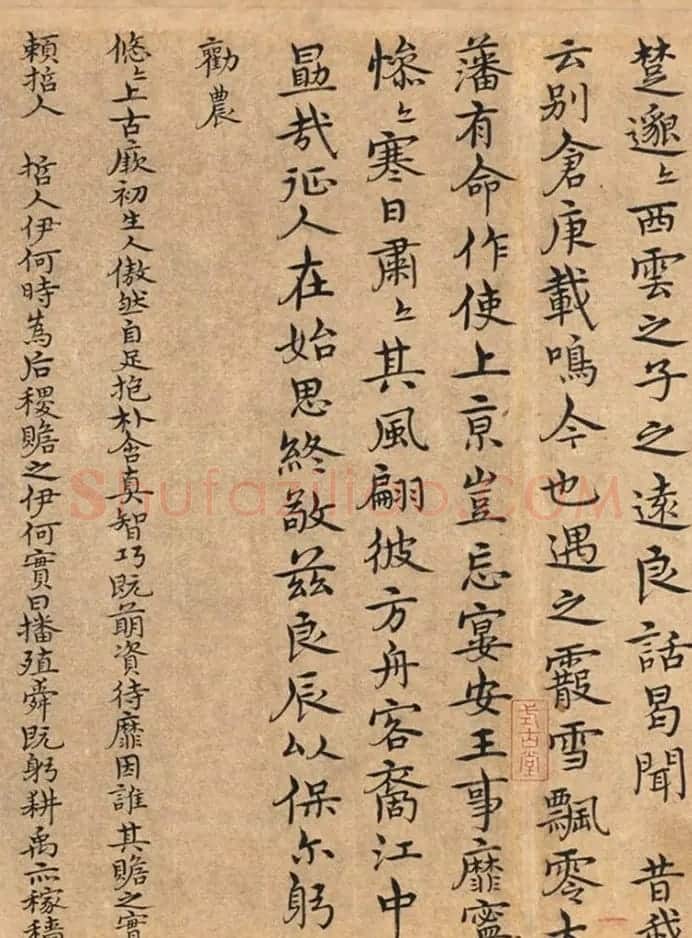 楚邈〻西雲之子之遠良話曷聞 昔我
云别倉庚載鳴今也遇之霰雪飄零大
藩有命作使上京豈忘宴安王事靡寧
慘〻寒日肅〻其風翩彼方舟容裔江中
勗哉征人在始思終敬兹良辰以保尔躬
勸農
悠〻上古厥初生人傲然自足抱朴含真智巧既萌資待靡因誰其贍之實
賴哲人 哲人伊何時為后稷贍之伊何實曰播殖舜既躬耕禹亦稼穡
式古堂
Shufaziliao.COM